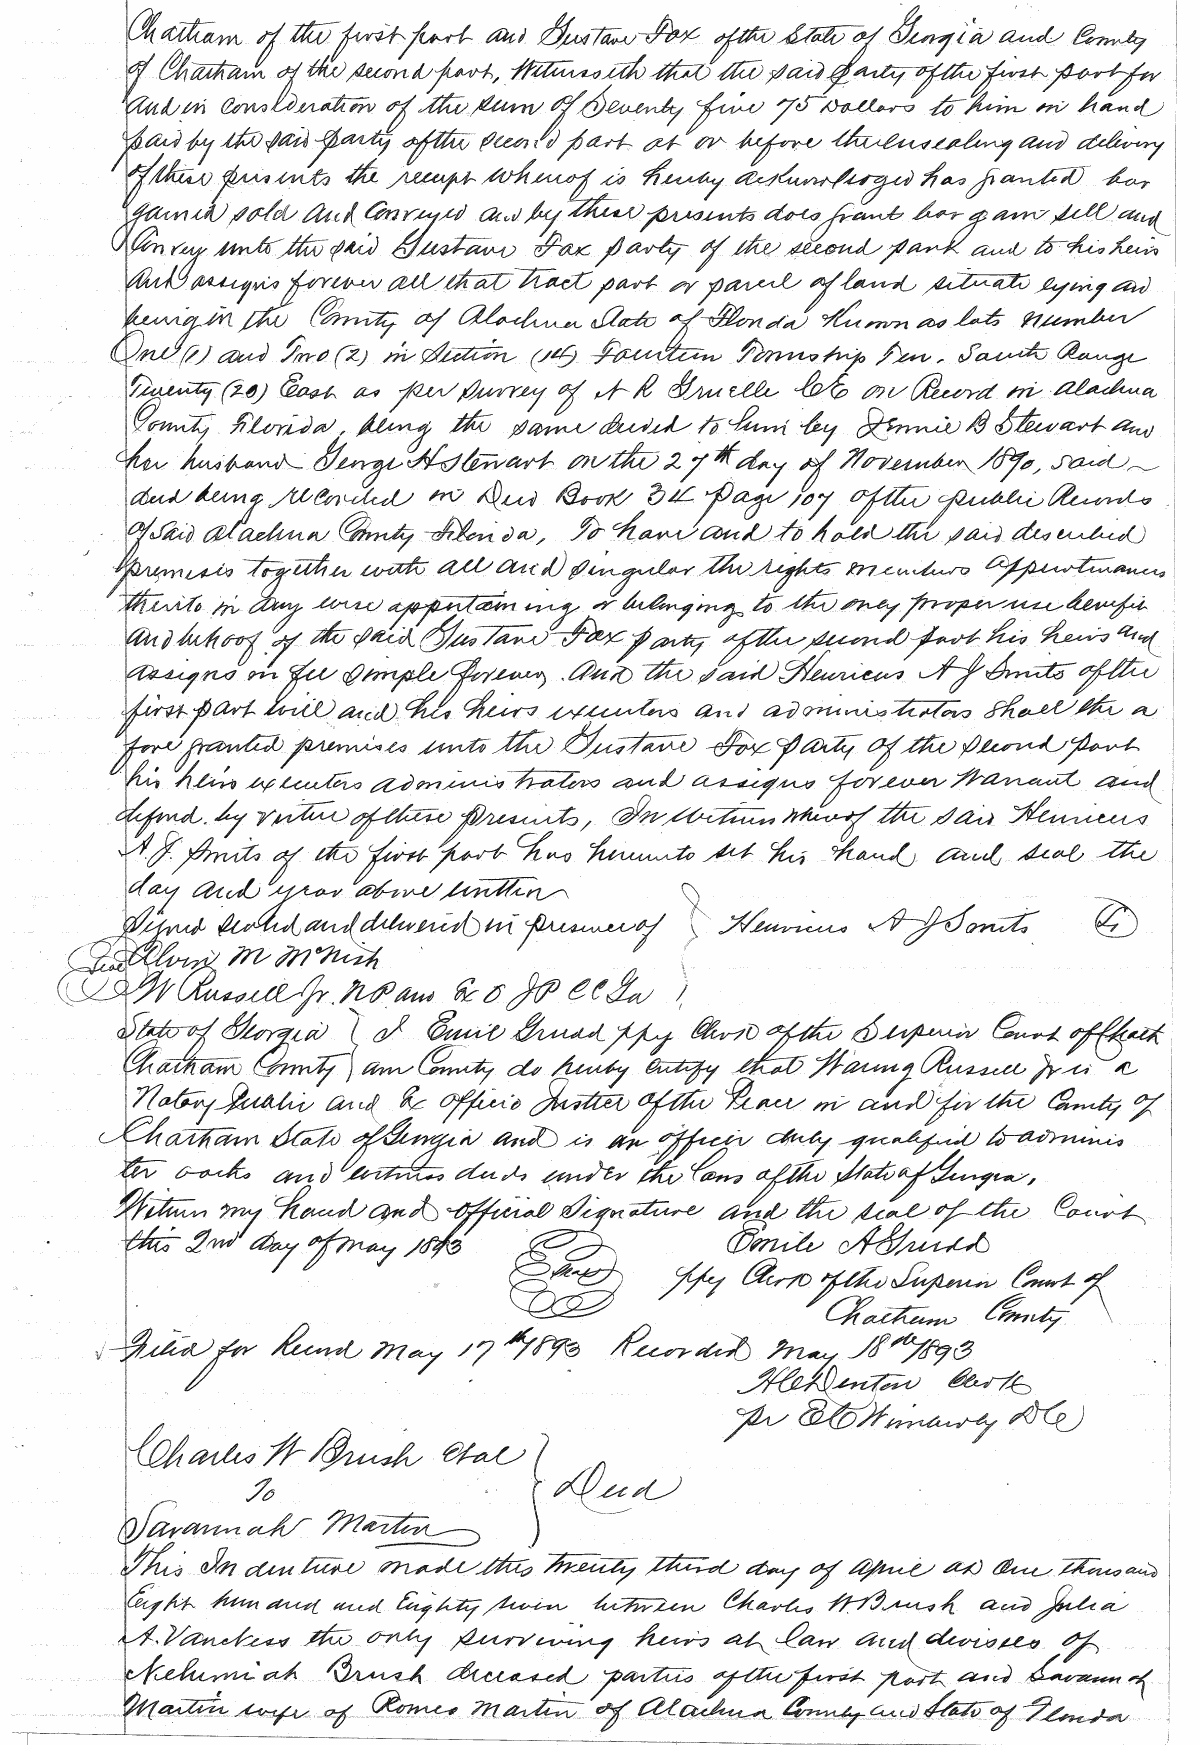 Chatham of the first part and Gustave Fox of the State of Georgia and County
of Chatham of the second part, Witnesseth that the said Party of the first part for
and in consideration of the sum of Seventy five 75 Dollars to him in hand
paid by the said Party of the second part at or before the ensealing and delivery
of these presents the receipt whereof is hereby acknowledged has granted bar
gained sold and Conveyed and by these presents does grant bargain sell and
Convey unto the said Gustave Fox party of the second part and to his heirs
and assigns forever all that tract part or parcel of land situate lying and
being in the County of Alachua State of Florida Known as lots number
One (1) and Two (2) in Section (14) Fourteen Township Ten. South Range
Twenty (20) East as per survey of N R Gruelle CE on Record in Alachua
County Florida, being the same deeded to him by Jennie B Stewart and
her husband George H Stewart on the 27th day of November 1890, said
deed being recorded in Deed Book 34 page 107 of the public Records
of said Alachua County Florida, To have and to hold the said described
premises together with all and singular the rights members appurtenances
thereto in any wise appertaining or belonging to the only proper use benefit
and behoof of the said Gustave Fox party of the second part his heirs and
assigns in fee simple forever. And the said Henricus A J Smits of the
first part will and his heirs executors and administrators shall the a
fore granted premises unto the Gustave Fox Party of the second part
his heirs executors administrators and assigns forever Warrant and
defend. by virtue of these Presents, In Witness whereof the said Henricus
A. J. Smits of the first part has hereunto set his hand and seal the
day and year above written
Signed sealed and delivered in presence of } Henricus A J Smits
Alvin M McNish
Seal W Russell Jr. NP and Ex O JP CC Ga
State of Georgia } I Emile Grudd ppy Clerk of the Superior Court of Chath
Chatham County } am County do hereby certify that Waring Russell Jr is a
Notary Public and Ex officio Justice of the Peace in and for the County of
Chatham State of Georgia and is an officer duly qualified to adminis
ter oaths and witness deeds under the laws of the State of Georgia.
Witness my hand and official Signature and the seal of the Court
this 2nd day of May 1893 Emile A Grudd
Seal ppy Clerk of the Superior Court of
Chatham County
Filed for Record May 17th 1893 Recorded May 18th 1893
H C Denton Clerk
pr E C Wimberly D C
Charles W Brush etal
To } Deed
Savannah Martin
This Indenture made this twenty third day of April AD One thousand
Eight hundred and Eighty seven between Charles W. Brush and Julia
A. Vanckess the only surviving heirs at law and devisees of
Nehemiah Brush deceased parties of the first part and Savannah
Martin wife of Romeo Martin of Alachua County and State of Florida